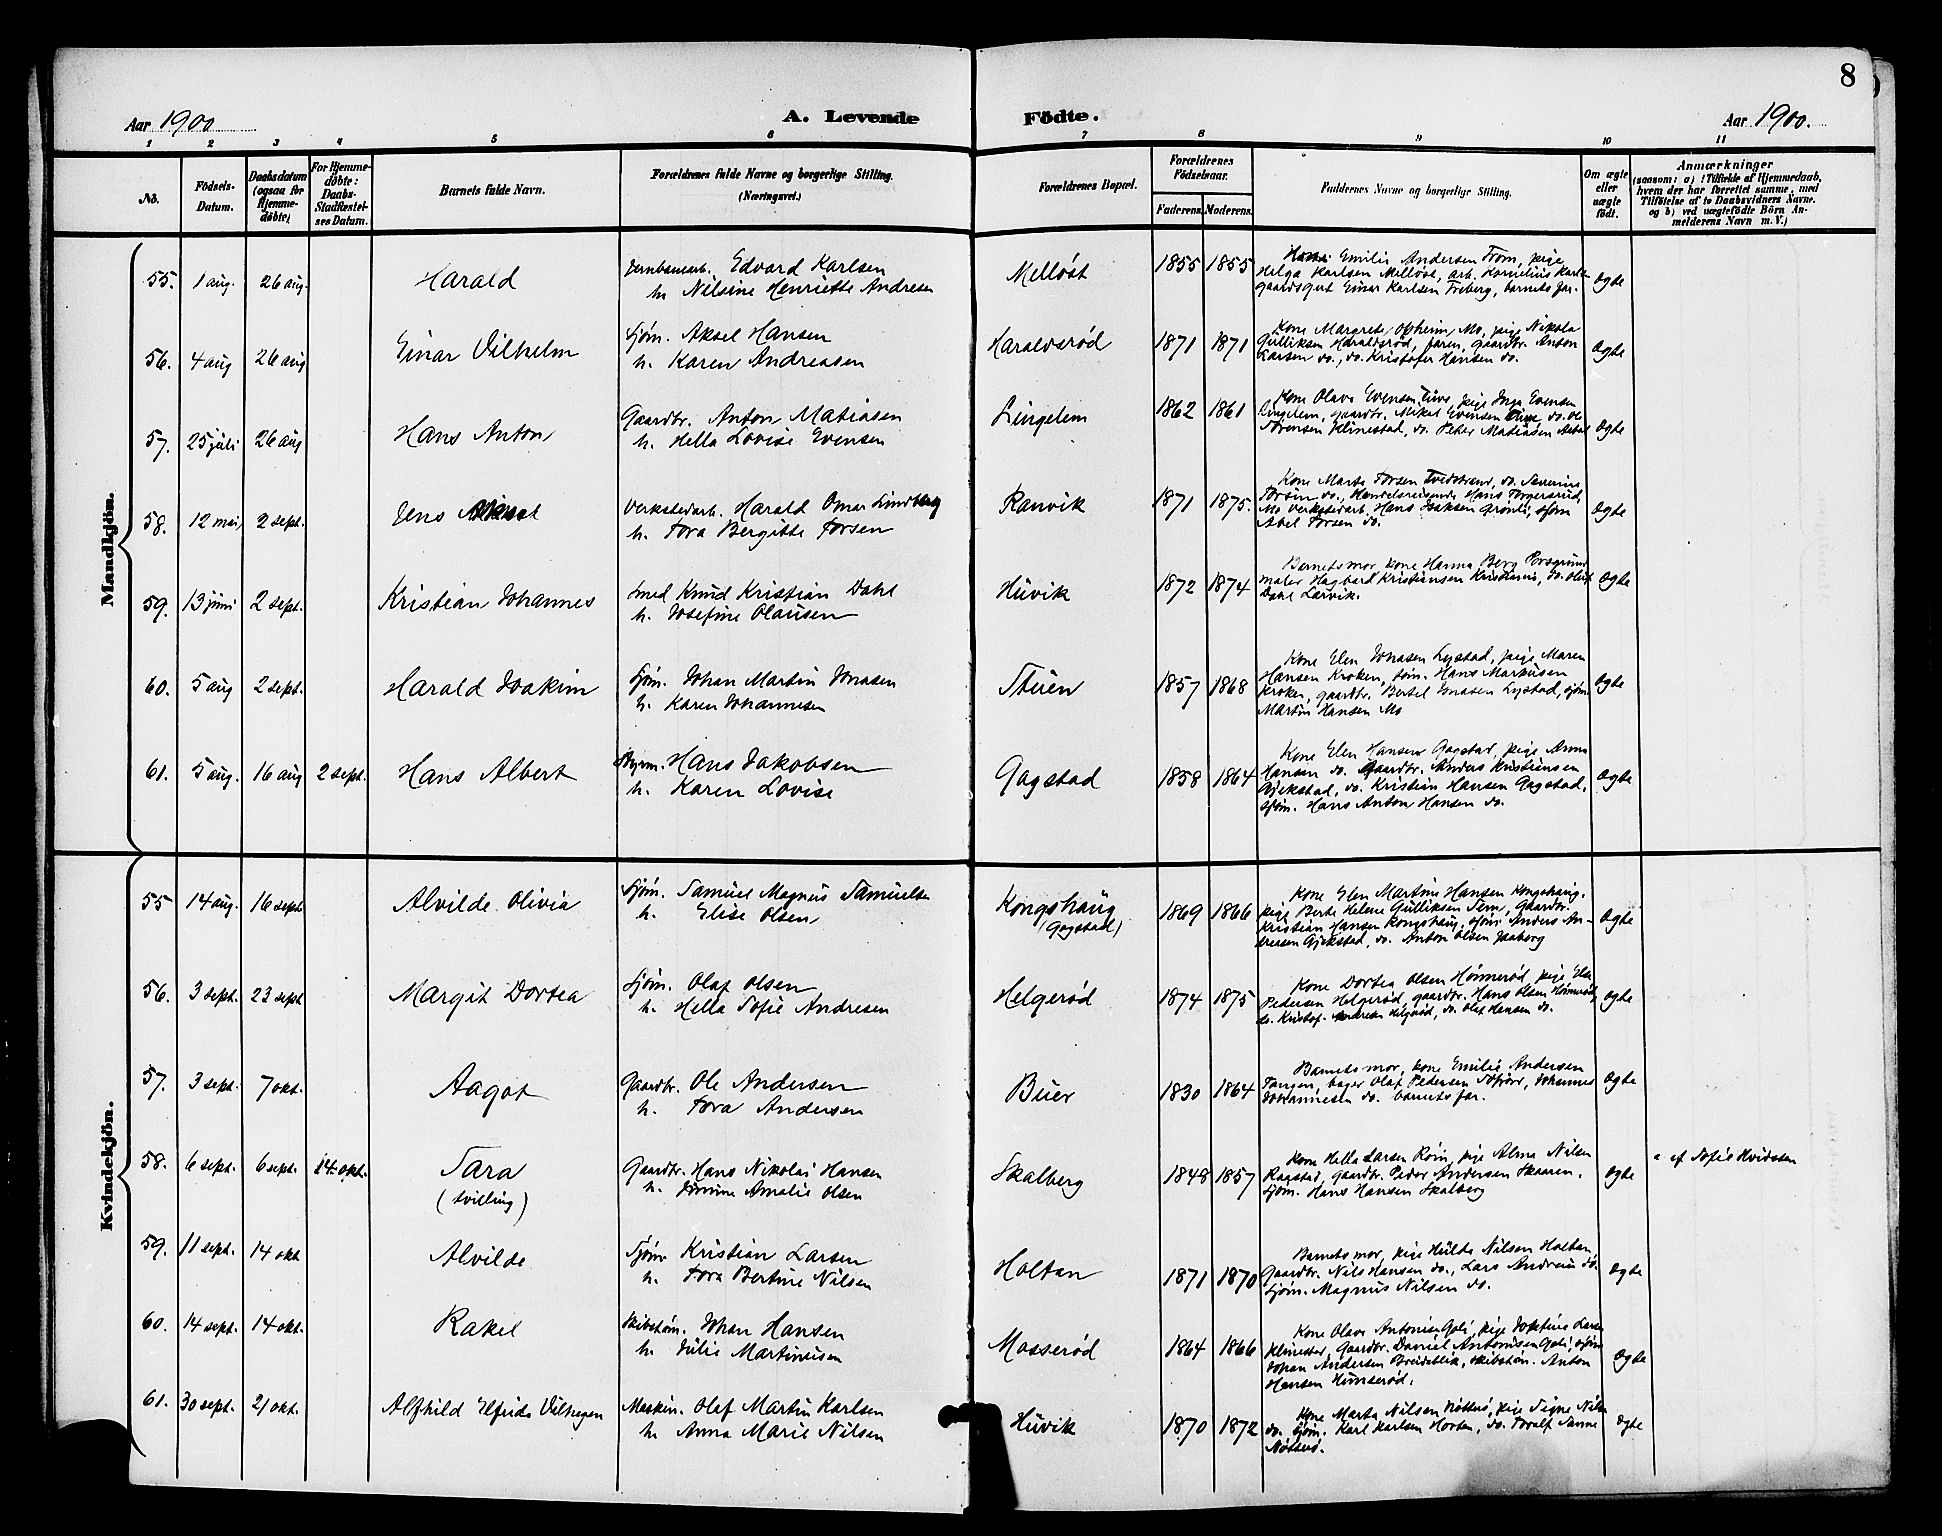 8
Aar 1900
A. Levende
Födte.
Aar 1900.
1 2 3 4 5 6 7 8 9 10 11
No.
Födsels-Datum.
Daabsdatum (ogsaa for Hjemme-döbte)
For Hjemme-döbte: Daabs-Stadfæstel-ses Datum.
Barnets fulde Navn.
Forældrenes fulde Navne og borgerlige Stilling. (Næringsvei.)
Forældrenes Bopæl.
Forældrenes Födselsaar.
Faderens. Moderens.
Faddernes Navne og borgerlige Stilling.
Om ægte eller uægte födt.
Anmærkninger
(saasom: a) i Tilfælde af Hjemmedaab,
hvem der har forrettet samme, med
Tilföielse af to Daabsvidners Navne.
og b) ved uægtefödte Börn An-
melderens Navn m. V.)
Mandkjön.
55. 1 aug. 26 aug. Harald
Jernbanearb. Edvard Karlsen
h. Nilsine Henriette Andresen
Melløst 1855 1855
Emilie Andersen From, pige
Helga Karlsen Melløst, arb. Kornelius Karls
gaardsgut Einar Karlsen Freberg, barnets far.
ægte
56. 4 aug 26 aug Einar Vilhelm
Sjøm. Aksel Hansen
h. Karen Andreasen
Haraldsrød 1871 1871
Kone Margrete Opheim Mo, pige Nikola
Gulliksen Haraldsrød, faren, gaardbr. Anton
Larsen do., do. Kristofer Hansen do.
ægte
57. 25 juli 26 aug Hans Anton
Gaardbr. Anton Matiasen
h. Hella Lovise Evensen
Lingelem 1862 1861
Kone Olava Evensen, pige Inga Evensen
Lingelem, gaardbr. Mikal Evensen do. Ole
Sørensen Klinestad, do. Peter Matiasen
ægte
58. 12 mai 2 sept. Jens
Verkstedarb. Harald Omar Lindberg
h. Tora Bergitte Torsen
Ranvik 1871 1875.
Kone Marta Torsen Tvedstrand, do. Severine
Torsen do., Handelsreisende Hans Torgersrud,
Mo Verkstedarb. Hans Isaksen Grønli, sjøm
Abel Torsen do.
ægte
59. 13 juni 2 sept. Kristian Johannes
Smed Knud Kristian Dahl
h. Josefine Olausen
Huvik 1872 1874
Barnets mor, kone Hanna Berg Porsgrund
maler Hagbard Kristiansen Kristiania, do. Oluf
Dahl Larvik.
ægte
60. 5 aug 2 sept. Harald Joakim
Sjøm. Johan Martin Jonasen
h. Karen Johannesen
Stuen 1857 1868
Kone Elen Jonasen Lystad, pige Maren
Hansen Kroken, sjøm. Hans Markusen
Kroken, gaardbr. Bertel Jonasen Lystad, sjøm.
Martin Hansen Mo
ægte
61. 5 aug. 16 aug 2 sept. Hans Albert
Styrm. Hans Jakobsen
h. Karen Lovise
Gogstad 1858 1864
Kone Elen Hansen Gogstad, pige Anna
Hansen do. Gaardbr. Anders Kristiansen
Gjekstad, do. Kristian Hansen Gogstad,
Sjøm. Hans Anton Hansen do.
ægte
Kvindekjön.
55 14 aug. 16 sept Alvilde Olivia
Sjøm. Samuel Magnus Samuelse
h. Elise Olsen
Kongshaug
(Gogstad) 1869 1866
Kone Elen Martine Hansen Kongshaug.
pige Berte Helene Gulliksen Fem, Gaardbr.
Kristian Hansen Kongshaug, sjøm. Anders An-
dreasen Gjekstad, do. Anton Olsen Jaaberg
ægte
56. 3 sept. 23 sept Margit Dortea
Sjøm. Olaf Olsen
h. Hella Sofie Andresen
Helgerød 1874 1875
Kone Dortea Olsen Hømmerød, pige Elen
Pedersen Helgerød, gaardbr. Hans Olsen Hømmerød,
do. Kristof. Andresen Helgerød, do. Olaf Hansen do.
ægte
57. 3 sept. 7 okt. Aagot
Gaardbr. Ole Andersen
h. Tora Andersen
Buer 1830 1864
Barnets mor, kone Emilie Andersen
Tangen, bager Olaf Pedersen, Johannes
Johannesen do. barnets far.
ægte
58. 6 sept. 6 sept. 14 okt. Sara
(tvilling)
Gaardbr. Hans Nikolai Hansen
h. Amalie Olsen
Skalberg 1848 1857
Kone Hella Larsen Røin, pige Alma Nilsen
Ragstad, Gaardbr. Peder Andersen Skaaren,
Sjøm. Hans Hansen Skalberg
ægte
af Sofie Hvidsten
59. 11 sept. 14 okt Alvilde
Sjøm. Kristian Larsen
h. Tora Bertine Nilsen
Holtan 1871 1870
Barnets mor, pige Hulda Nilsen Holtan,
Gaardbr. Nils Hansen do., Lars Andersen do.
Sjøm. Magnus Nilsen do.
ægte
60. 14 sept. 14 okt. Rakel
Skibstøm. Johan Hansen
h. Julie Martinisen
Mosserød 1864 1866
Kone Olava Antonisen Goli, pige Larsen
Klinestad, Gaardbr. Daniel Antonisen Goli, sjøm
Johan Andersen Breidablik, skibstøm. Anton
Hansen Hunserød.
ægte
61. 30 sept. 21 okt. Alfhild Elfrida Vilhagen
Maskin. Olaf Martin Karlsen
h. Anna Marie Nilsen
Huvik 1870 1872
Kone Marta Nilsen Nøtterø, pige Signe Nilsen
do. Sjøm. Karl Karlsen Horten, do. Toralf Sanne
Nøtterø.
ægte